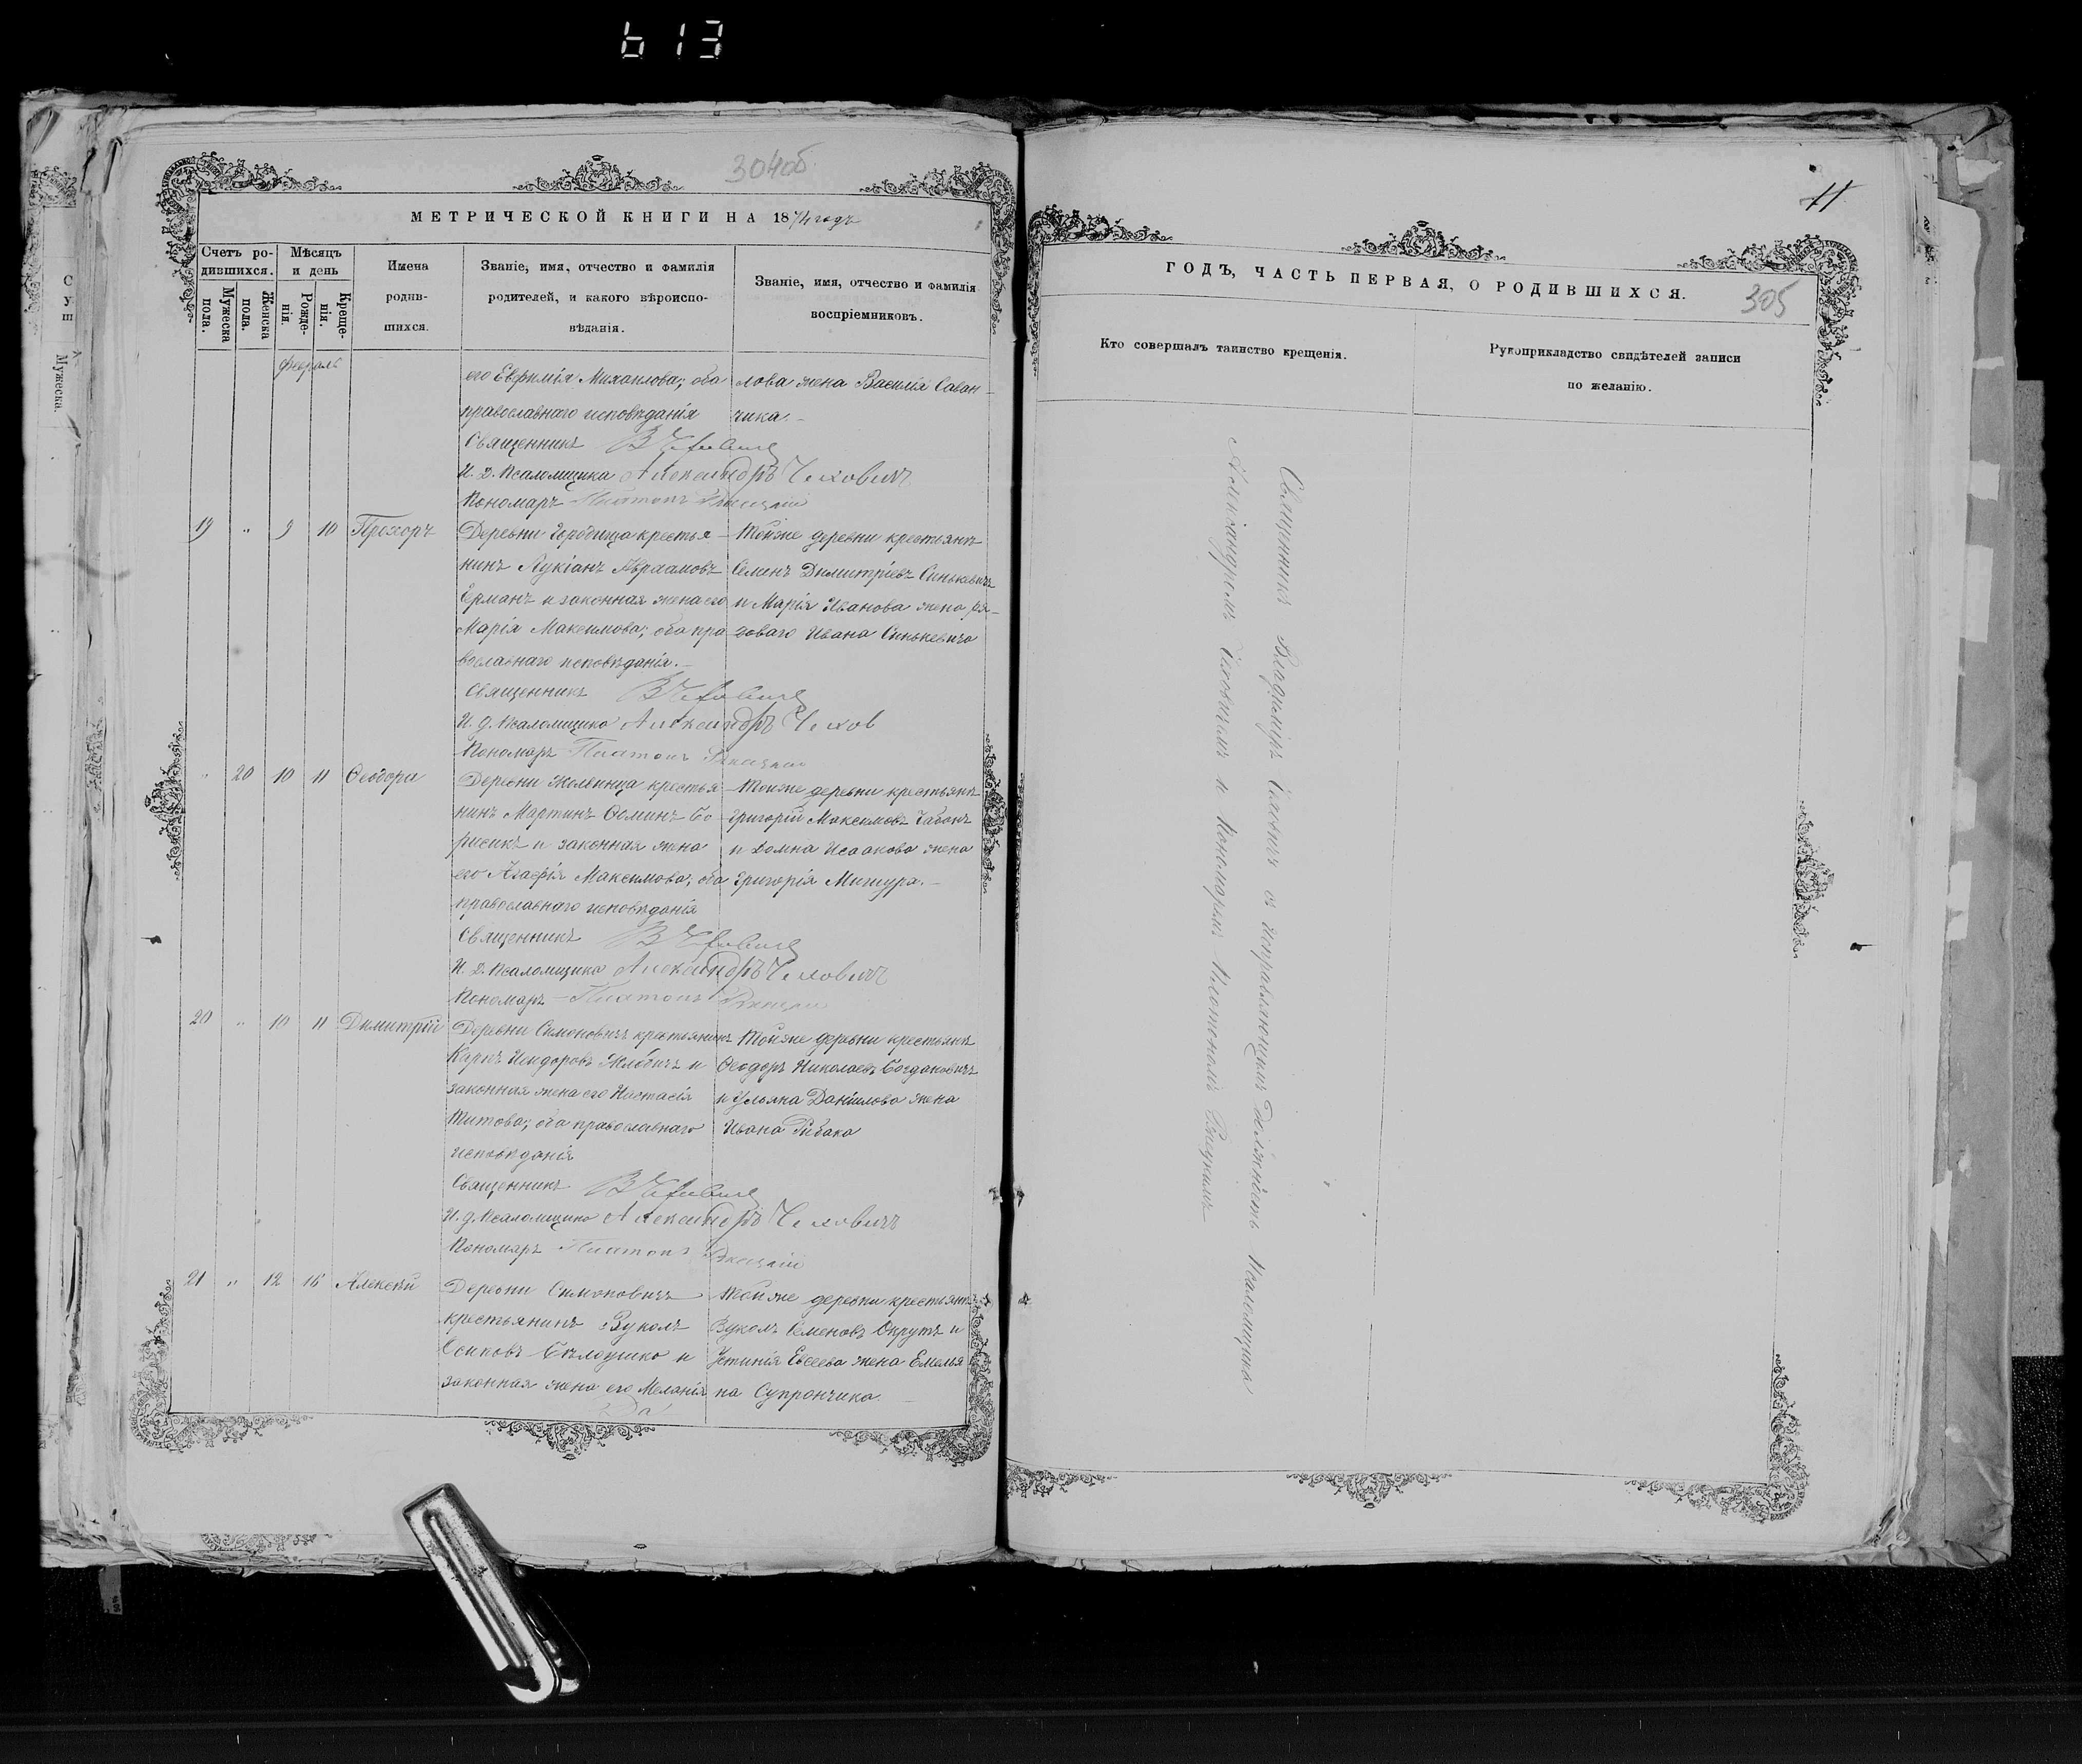 613
304об.
МЕТРИЧЕСКОЙ КНИГИ НА 1874 годъ
Счетъ ро-
дившихся.
Мѣсяцъ
и день
Мужеска
пола.
Женска
пола.
Рожде-
нія.
Креще-
нія.
Имена
родив-
шихся.
Званіе, имя, отчество и фамилія
родителей, и какого вѣроиспо-
вѣданія.
Званіе, имя, отчество и фамилія
воспріемниковъ.
Февраль
его Евфимія Михаилова; оба
православнаго исповѣданія
лова жена Василія Саван-
чика.-
Священникъ
И. Д. Псаломщика Александръ Чеховичъ
Пономарь Платонъ
19 " 9 10 Прохоръ
Деревни Городища крестья-
нинъ Лукіанъ Авраамовъ
Германъ и законная жена его
Марія Максимова; оба пра-
вославнаго исповѣданія.-
Тойже деревни крестьянъ
Семенъ Димитріевъ Синькевичъ
и Марія Иванова жена ря-
доваго Ивана Синькевича
Священникъ
И. д. Псаломщика Александръ Чехов
Пономарь Платонъ
" 20 10 11 Ѳеодора
Деревни крестья-
нинъ Мартинъ Ѳоминъ Бо-
рисикъ и законная жена
его Агафія Максимова; оба
православнаго исповѣданія
Тойже деревни крестьянъ
Григорій Максимовъ
и Домна Исаакова жена
Григорія Мишура.-
Священникъ
И. Д. Псаломщика Александръ Чеховичъ
Пономарь - Платонъ
20 " 10 11 Димитрій
Деревни Симоновичъ крестьянинъ
Карпъ Исидоровъ и
законная жена его Настасія
Титова; оба православнаго
исповѣданія
Тойже деревни крестьянъ
Ѳеодоръ Николаевъ Богдановичъ
и Ульяна Даніилова жена
Ивана Рыбака
Священникъ
И. д. Псаломщика Александръ Чеховичъ
Пономарь Платонъ
21 " 12 16 Алексѣй
Деревни Симоновичъ
крестьянинъ Вуколъ
Осиповъ и
законная жена его Меланія
Да
Тойже деревни крестьянъ
Вуколъ Семеновъ Окрутъ и
Устинія Евсеева жена Емелья
на Супрончика.-
11
ГОДЪ, ЧАСТЬ ПЕРВАЯ, О РОДИВШИХСЯ.
305
Кто совершалъ таинство крещенія.
Рукоприкладство свидѣтелей записи
по желанію.
Священникъ Владиміръ съ исправляющимъ должность Псаломщика
Александромъ Чеховичемъ и Пономаремъ Платономъ
С
У
Ш
Мужеска.